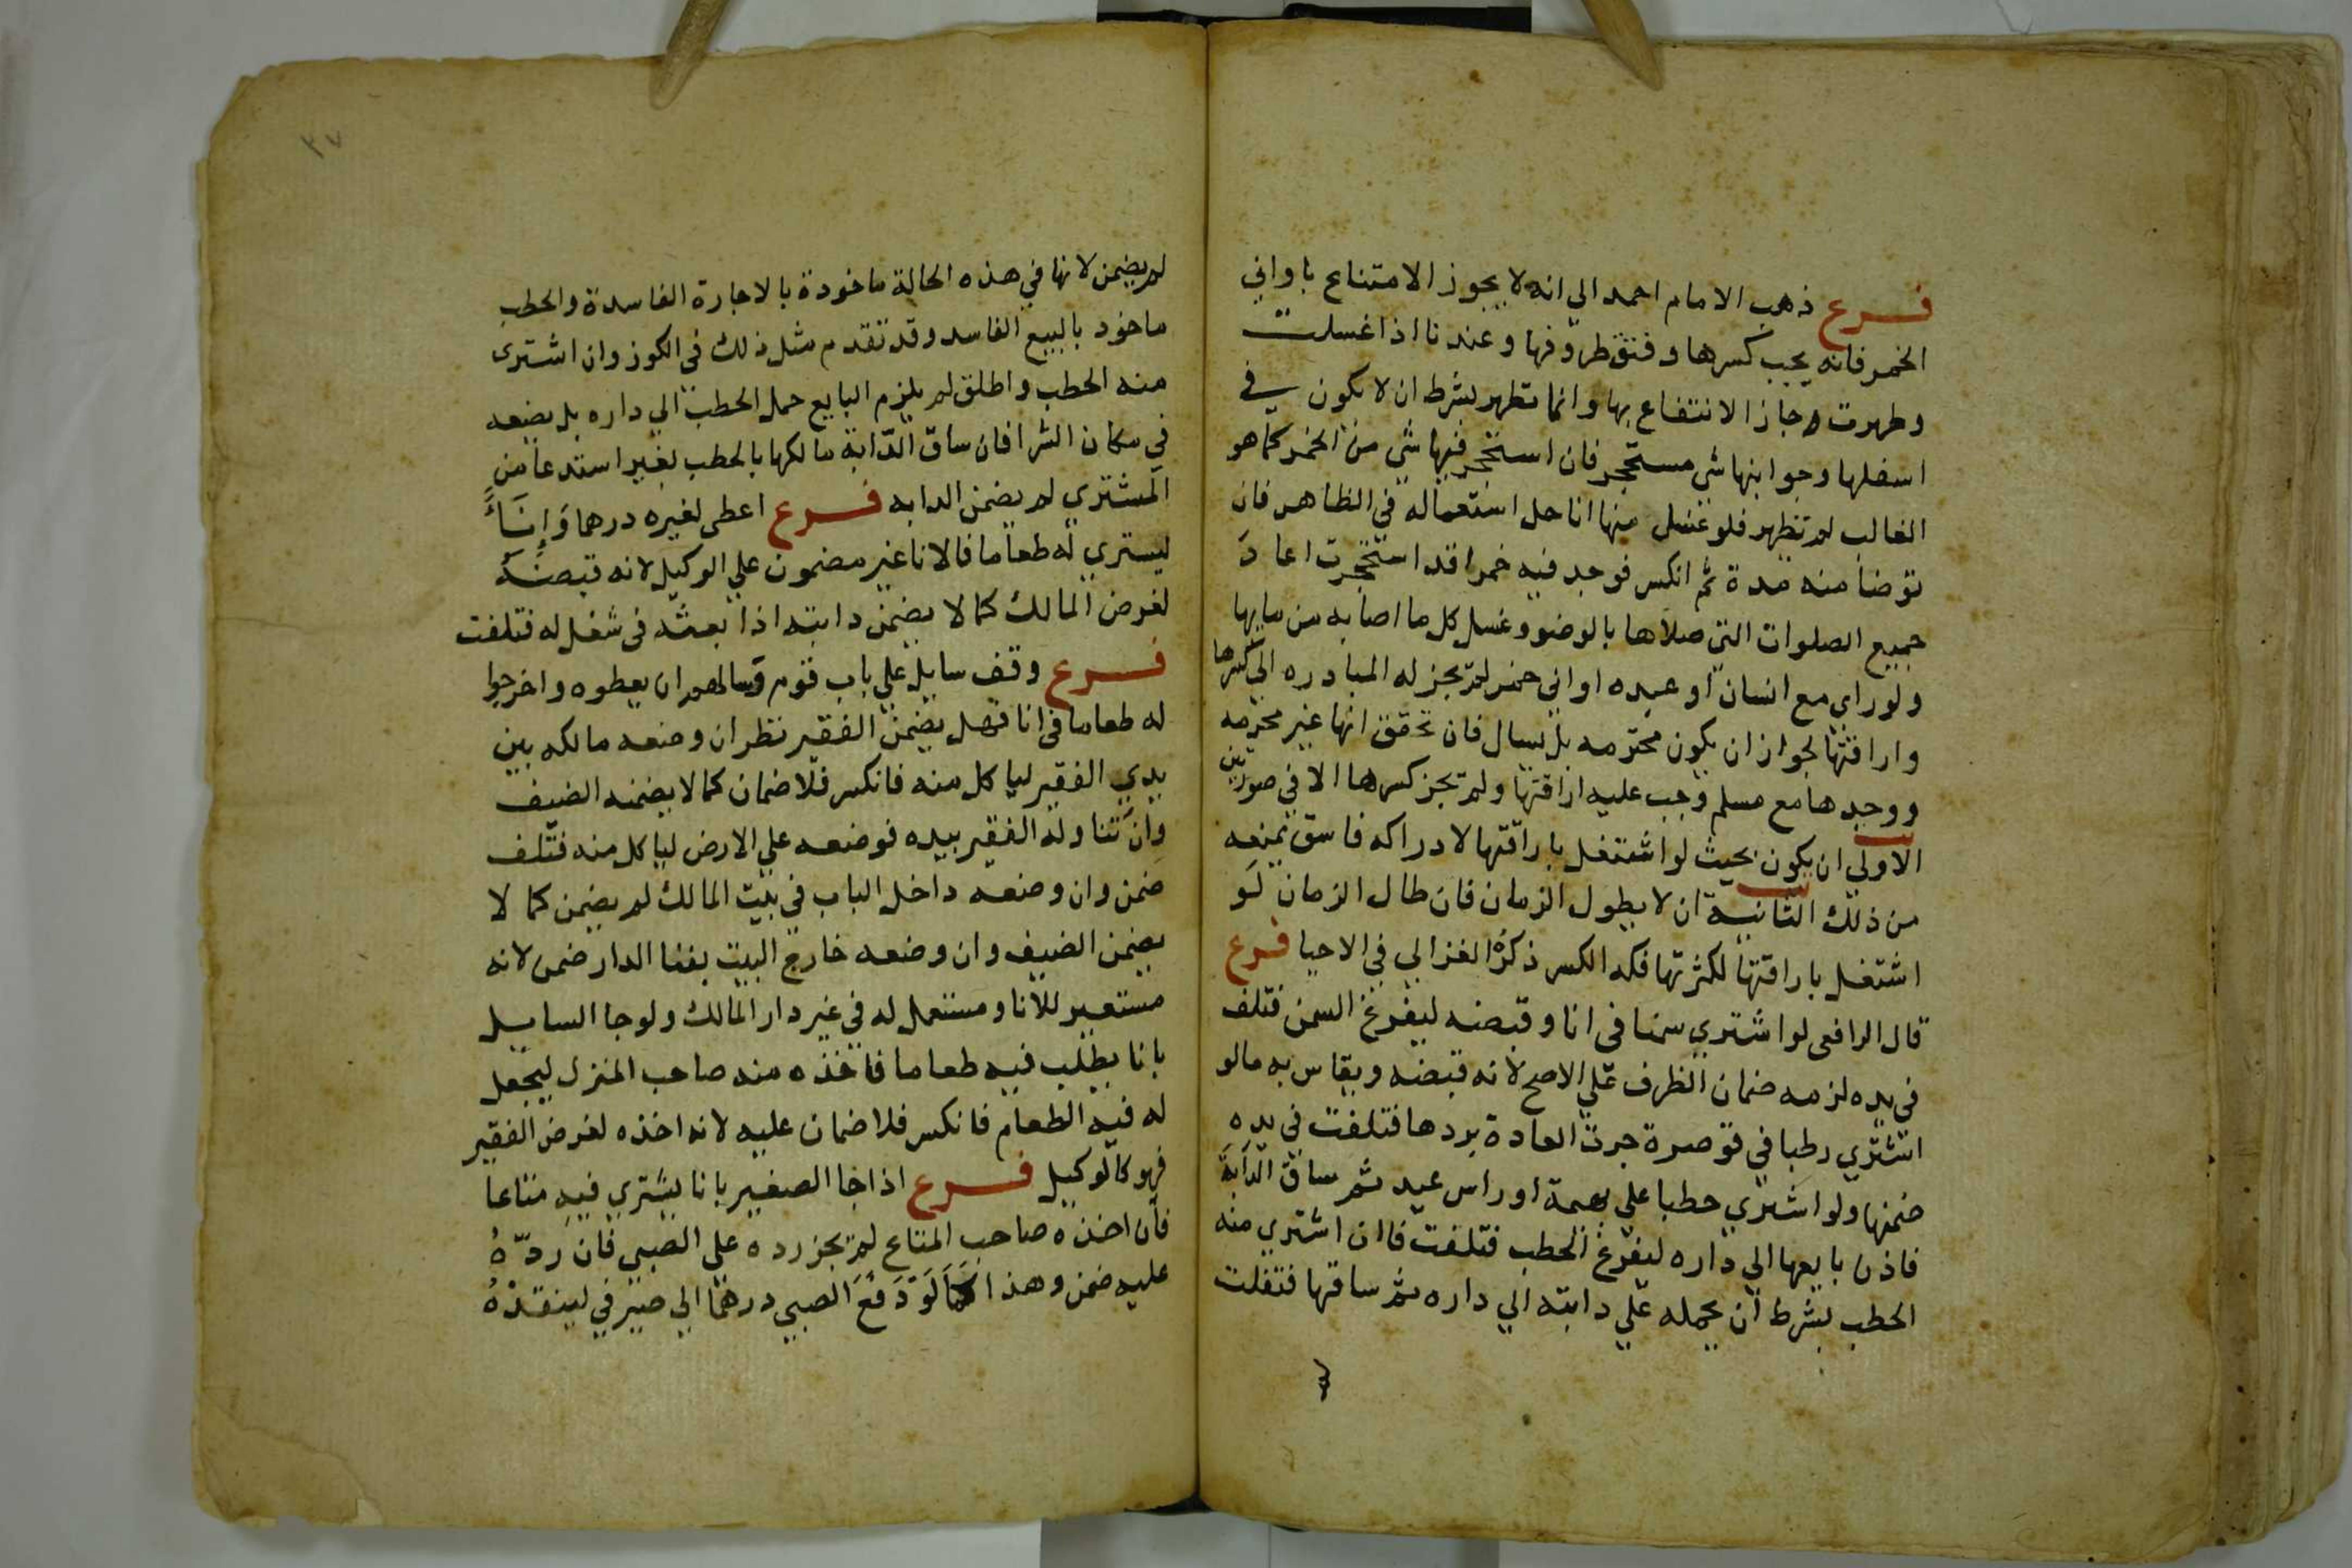 فرع ذهب الامام احمد الي انه لا يجوز الامتناع باواني
الخمر فانه يجب كسرها وفتق ظروفها وعندنا اذا غسلت
وطهرت جاز الانتفاع بها وانما تطهر بشرط ان لا يكون في
اسفلها وجوابنها شي مستحجر فان استحجر فيها شي من الخمر كما هو
الغالب لم تطهر فلو غسل منها انا حل استعماله في الظاهر فان
توضا منه مدة ثم انكسر فوجد فيه خمرا قد استحجرت اعاد
جميع الصلوات التي صلاها بالوضو وغسل كل ما اصابه من مايها
ولو راي مع انسان او عبده اواني خمر لم تجز له المبادره الي كسرها
واراقتها لجواز ان يكون محترمه بل يسال فان تحقق انها غير محترمه
ووجدها مع مسلم وجب عليه اراقتها ولم تجز كسرها الا في صورتين
الاولي ان يكون بحيث لو اشتغل باراقتها لادراكه فاسق يمنعه
من ذلك الثانية ان لا يطول الزمان فان طال الزمان لو
اشتغل باراقتها لكثرتها فله الكسر ذكره الغزالي في الاحيا فرع
قال الرافعي لو اشتري سمنا في انا وقبضه ليفرغ السمن فتلف
في يده لزمه ضمان الظرف علي الاصح لانه قبضه ويقاس به مالو
اشتري رطبا في قوصرة جرت العادة بردها فتلفت في يده
ضمنها ولو اشتري حطبا علي بهيمة او راس عبد ثم ساق الدابة
فاذن بايعها الي داره ليفرغ الحطب فتلفت فاان اشتري منه
الحطب بشرط ان يحمله علي دابته الي داره ثم ساقها فتفلت
٣٧
لم يضمن لانها في هذه الحالة ماخوذة بالاجارة الفاسدة والحطب
ماخوذ بالبيع الفاسد وقد تقدم مثل ذلك في الكوز وان اشتري
منه الحطب واطلق لم يلزم البايع حمل الحطب الي داره بل يضعه
في مكان الشرا فان ساق الدابة مالكها بالحطب بغير استدعا من
المشتري لم يضمن الدابه فرع اعطي لغيره درهما وإناءً
ليستري له طعاما فالانا غير مضمون علي الوكيل لانه قبضه
لغرض المالك كما لا يضمن دابته اذا بعثه في شغل له فتلفت
فرع وقف سايل علي باب قوم وسالهم ان يعطوه واخرجوا
له طعاما في انا فهل يضمن الفقير نظر ان وضعه مالكه بين
يدي الفقير لياكل منه فانكسر فلا ضمان كما لا يضمنه الضيف
وان تناوله الفقير بيده فوضعه علي الارض لياكل منه فتلف
ضمن وان وضعه داخل الباب في بيت المالك لم يضمن كما لا
يضمن الضيف وان وضعه خارج البيت بفنا الدار ضمن لانه
مستعير للانا ومستعمل له في غير دار المالك ولو جا السايل
بانا يطلب فيه طعاما فاخذه منه صاحب المنزل ليجعل
له فيه الطعام فانكسر فلا ضمان عليه لانه اخذه لغرض الفقير
فهو كالوكيل فرع اذا جا الصغير بانا يشتري فيه متاعا
فان اخذه صاحب المتاع لم تجز رده علي الصبي فان ردّهُ
عليه ضمن وهذا كما لَوْ دَفَعَ الصبي درهما الي صيرفي لينقدْهُ